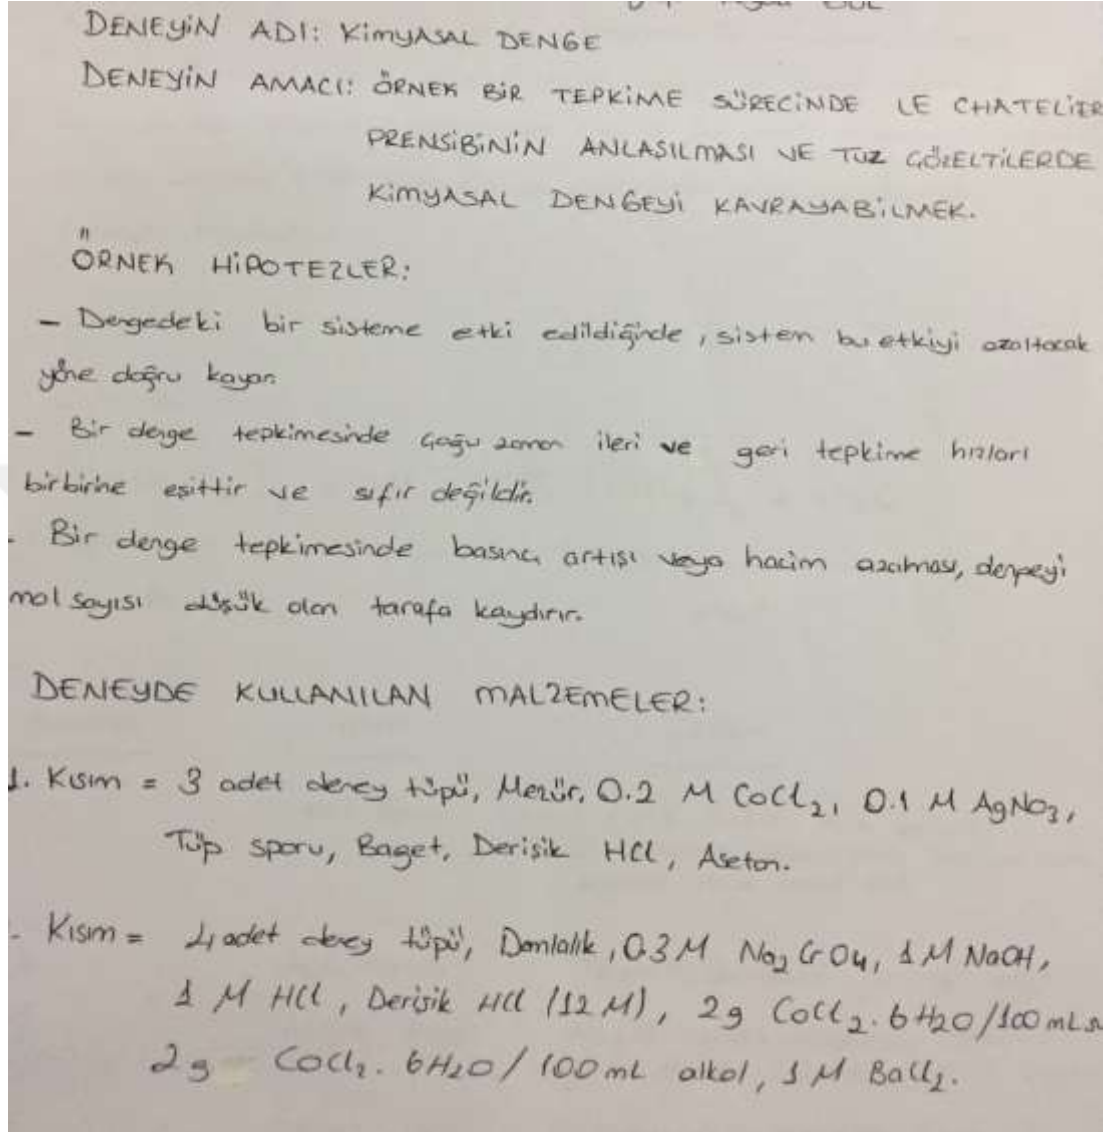 DENEYİN ADI: KİMYASAL DENGE
DENEYİN AMACI: ÖRNEK BİR TEPKİME SÜRECİNDE LE CHATELİER
PRENSİBİNİN ANLAŞILMASI VE TUZ ÇÖZELTİLERDE
KİMYASAL DENGEYİ KAVRAYABİLMEK.
ÖRNEK HİPOTEZLER:
- Dengedeki bir sisteme etki edildiğinde, sistem bu etkiyi azaltacak
yöne doğru kayar.
- Bir denge tepkimesinde çoğu zaman ileri ve geri tepkime hızları
birbirine eşittir ve sıfır değildir.
- Bir denge tepkimesinde basınç artışı veya hacim azalması, dengeyi
mol sayısı düşük olan tarafa kaydırır.
DENEYDE KULLANILAN MALZEMELER:
1. Kısım = 3 adet deney tüpü, Mezür, 0.2 M CoCl₂, 0.1 M AgNO₃,
Tüp sporu, Baget, Derişik HCl, Aseton.
. Kısım = 4 adet deney tüpü, Damlalık, 0.3M Na₂CrO₄, 1 M NaOH,
1 M HCl, Derişik HCl (12 M), 2g CoCl₂. 6H₂O/100 mL
2g CoCl₂. 6H₂O/100 mL alkol, 1 M BaCl₂.